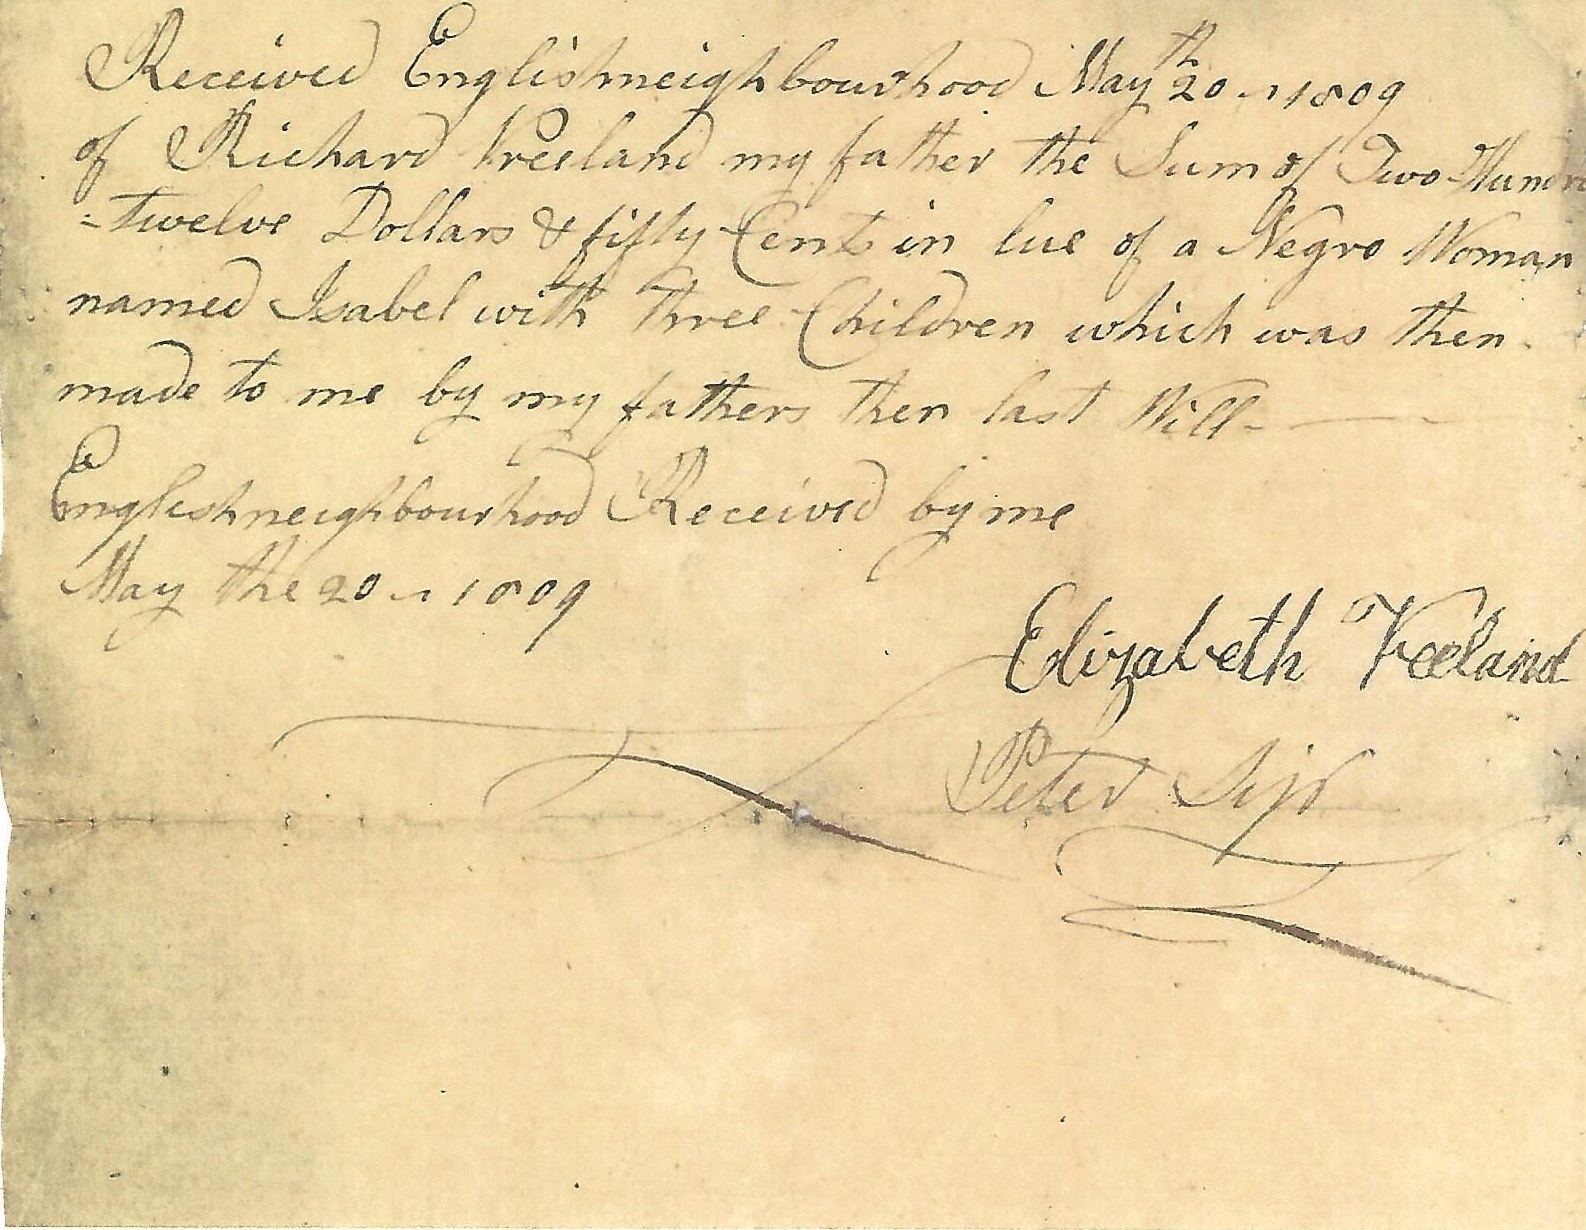 Received Englishneighbourhood May 20th 1809
of Richard Vreeland my father the Sum of Two Hundre
=twelve Dollars & fifty Cents in lue of a Negro Woman
named Isabel with three Children which was then
made to me by my fathers then last Will
Englishneighbourhood Received by me
May the 20 1809
Elizabeth Vreeland
Peter